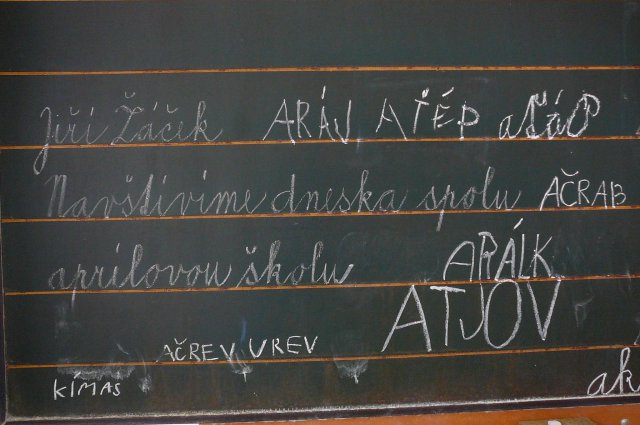 Jiří Žáček ARÁJ AŤÉP aťáP
Navštívíme dneska spolu AČRAB
aprílovou školu ARÁLK
ATJOV
AČREV UREV
KÍMAŠ
ak